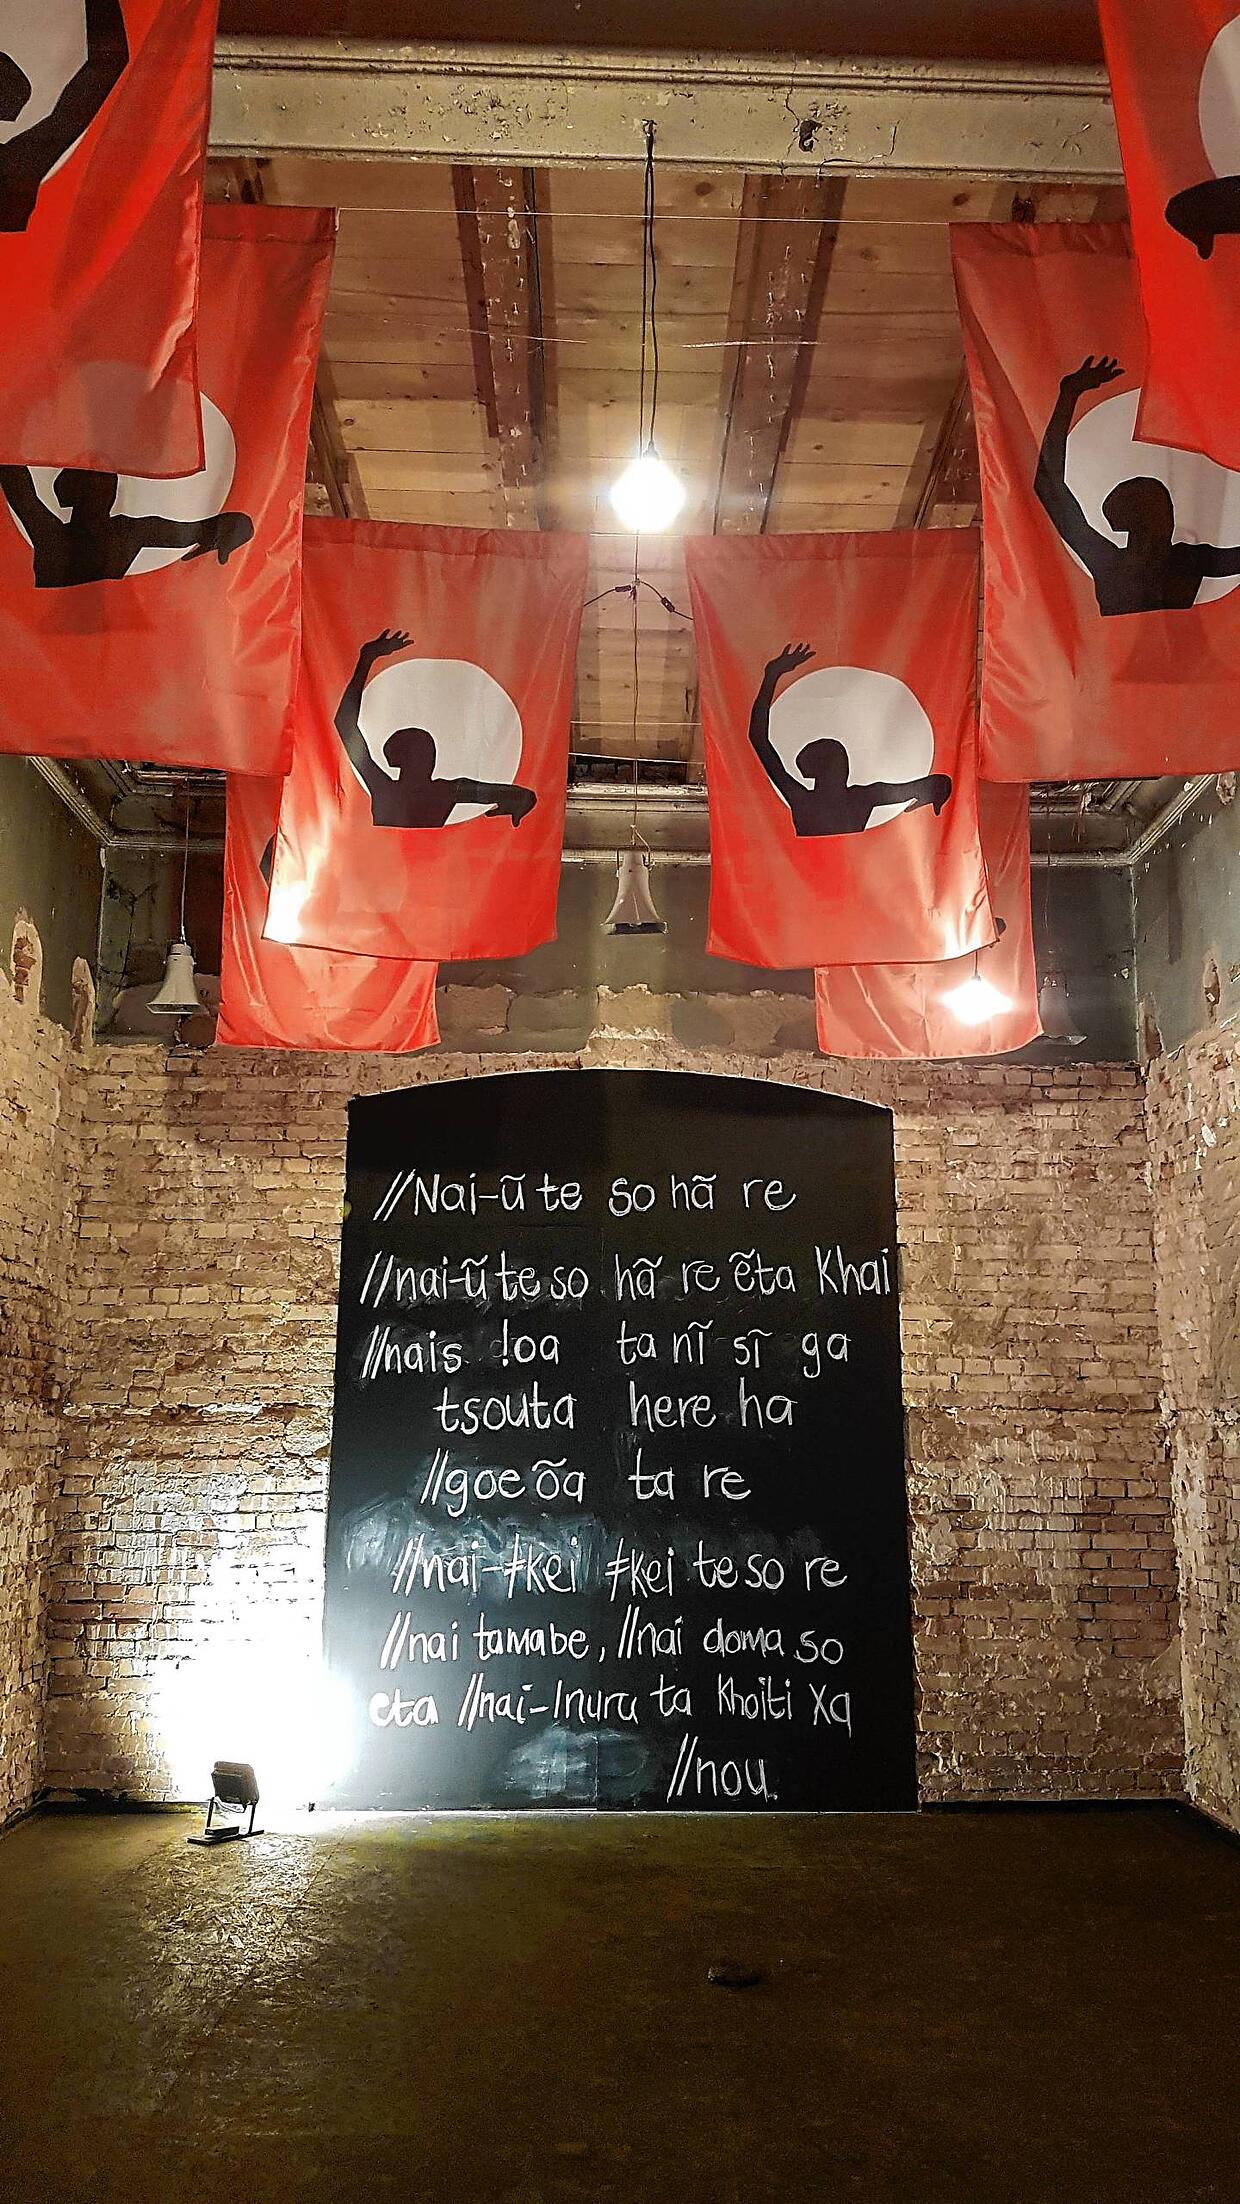 //Nai-ũ te so hã re
//nai-ũ te so hã re ẽta Khai
//nais !oa ta nĩ sĩ ga
tsouta here ha
//goe õa ta re
//nai-ǂkei ǂkei te so re
//nai tamabe, //nai doma so
eta //nai-Inuru ta Khoiti Xa
//nou.